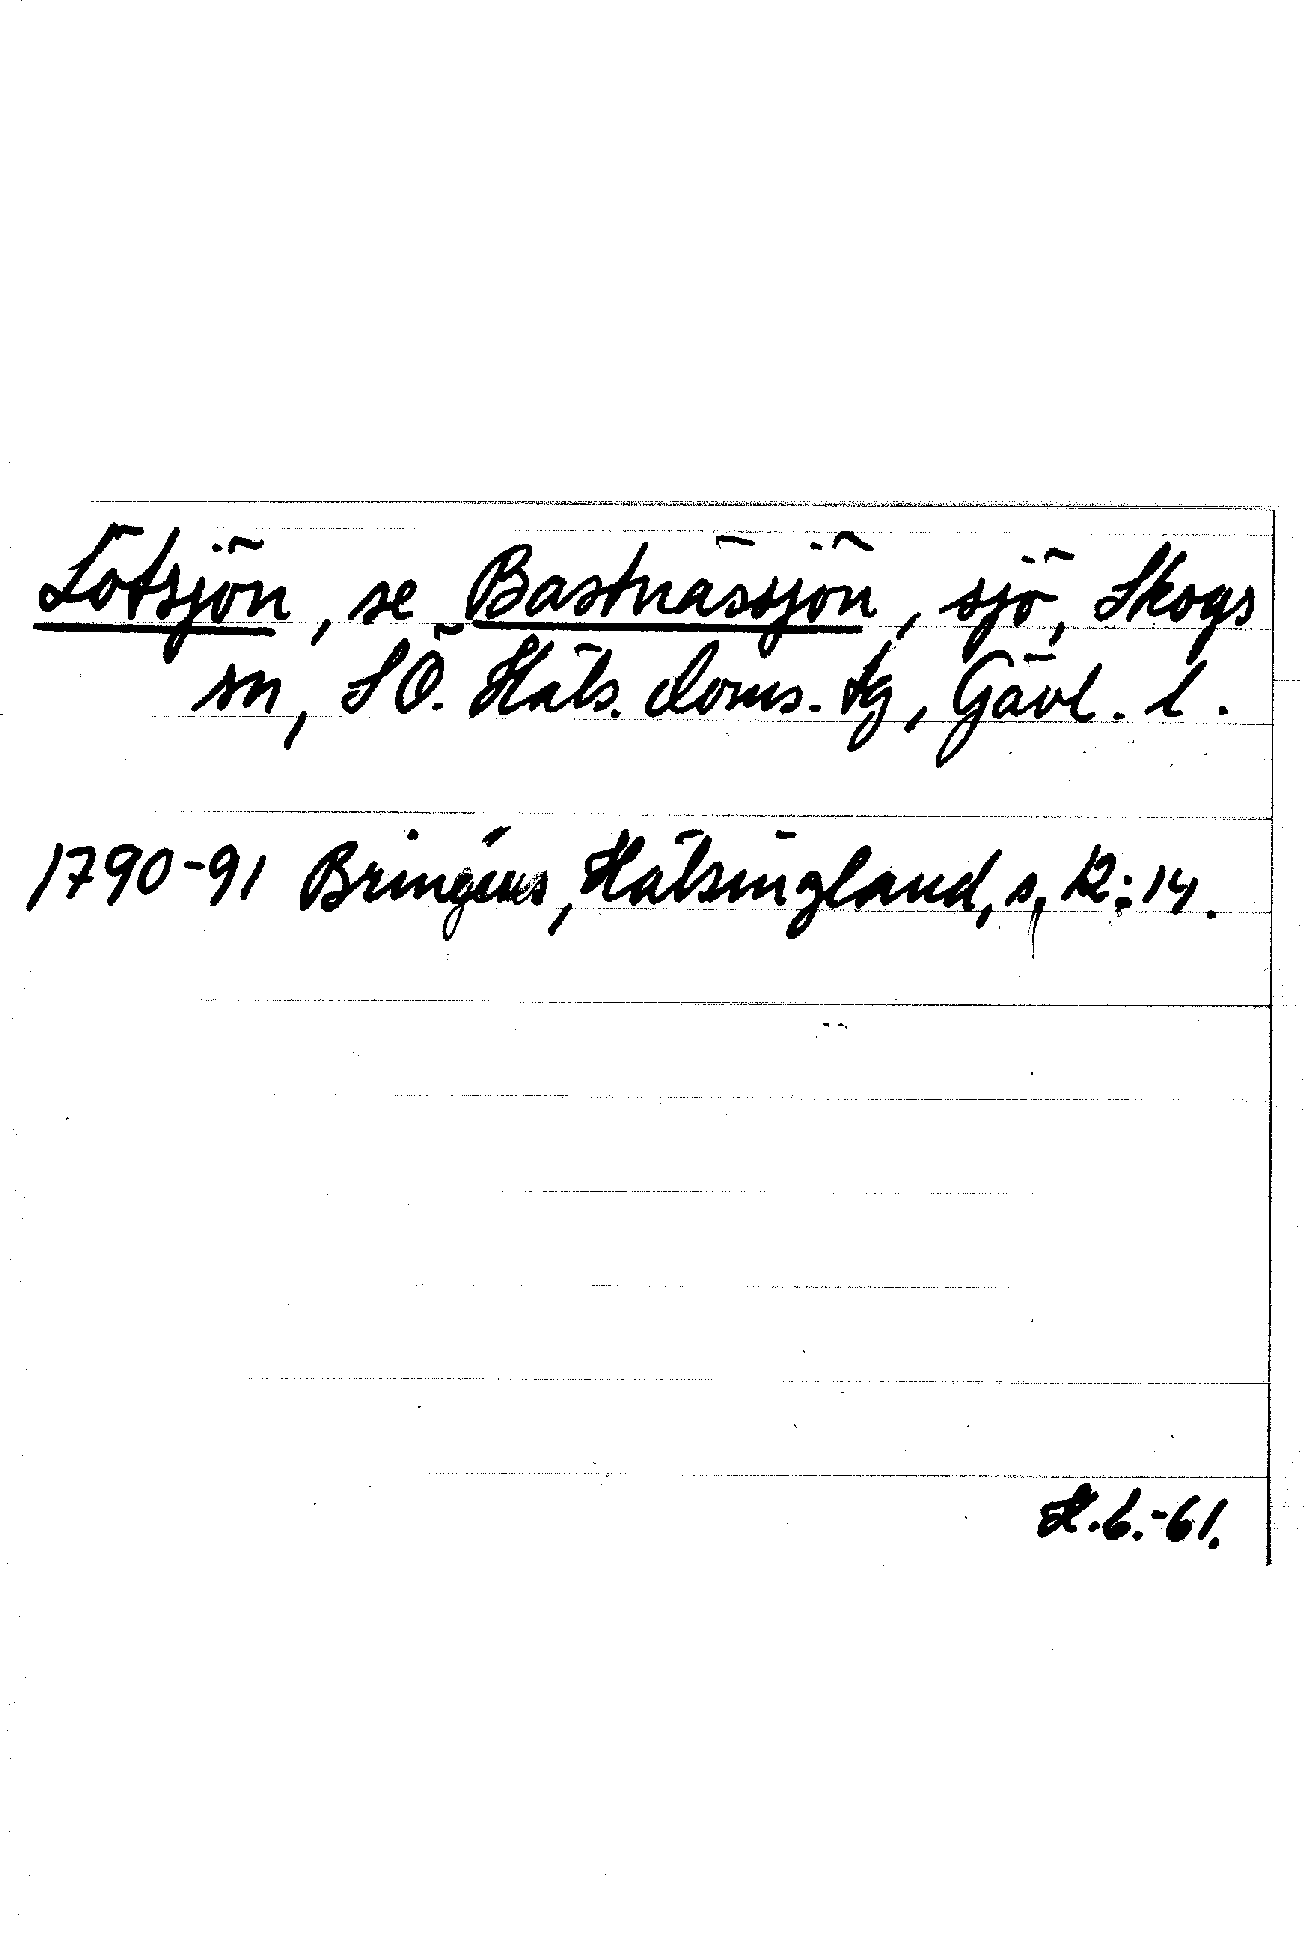 Lötsjön, se Bastnässjön, sjö, Skogs
sn, SÖ. Häls. doms. tg, Gävl. l.
1790-91 Bringéus, Hälsingland, s. 12:14.
H.6.-61.